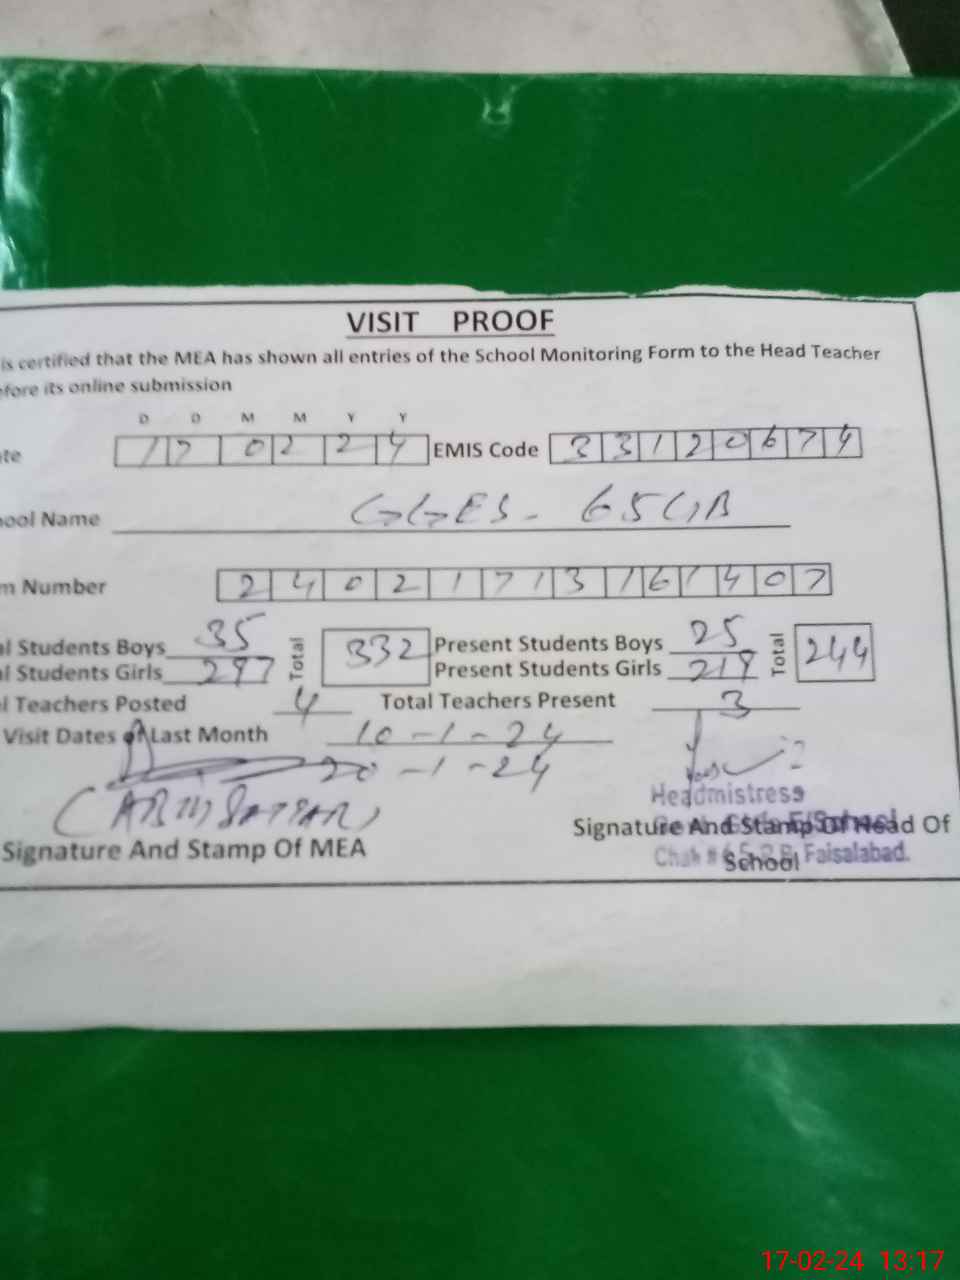 VISIT PROOF
is certified that the MEA has shown all entries of the School Monitoring Form to the Head Teacher
fore its online submission
D D M M Y Y
te 17 02 24 EMIS Code 33120674
ool Name GGES - 65 GB
m Number 24021713161407
l Students Boys 35 Total 332 Present Students Boys 25 Total 244
l Students Girls 297 Present Students Girls 219
l Teachers Posted 4 Total Teachers Present 3
Visit Dates of Last Month 10-1-24
20-1-24
Headmistress
Signature And Stamp Of Head Of
School
Chak # Faisalabad.
Signature And Stamp Of MEA
17-02-24 13:17